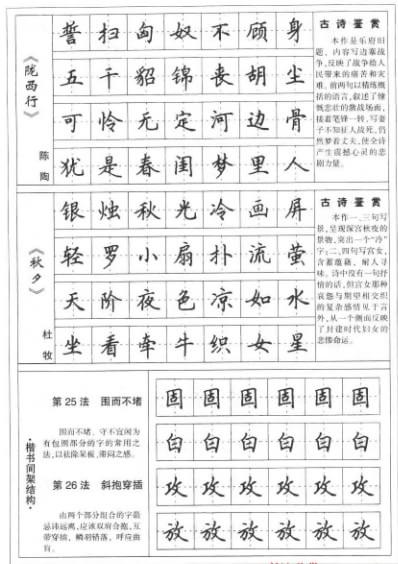 《陇西行》
陈陶
誓扫匈奴不顾身
五千貂锦丧胡尘
可怜无定河边骨
犹是春闺梦里人
古诗鉴赏
本作是乐府旧
题,内容写边塞战
争,反映了战争给人
民带来的痛苦和灾
难。前两句以精炼概
括的语言,叙述了慷
慨悲壮的激战场面,
接着笔锋一转,写妻
子不知征人战死,仍
然梦着丈夫,使全诗
产生震撼心灵的悲
剧力量。
《秋夕》
杜牧
银烛秋光冷画屏
轻罗小扇扑流萤
天阶夜色凉如水
坐看牵牛织女星
古诗鉴赏
本作一、三句写
景,呈现深宫秋夜的
景物,突出一个“冷”
字;二、四句写宫女,
含蓄蕴藉、耐人寻
味。诗中没有一句抒
情的话,但宫女那种
哀怨与期望相交织
的复杂感情见于言
外,从一个侧面反映
了封建时代妇女的
悲惨命运。
·楷书间架结构·
第25法 围而不堵
围而不堵、守不宜闲为
有包围部分的字的常用之
法,以祛除呆板、滞闷之感。
固固固固固固
白白白白白白
第26法 斜抱穿插
由两个部分组合的字最
忌讳远离,应该双肩合抱,互
带穿插,鳞羽错落,呼应曲
有。
攻攻攻攻攻攻
放放放放放放